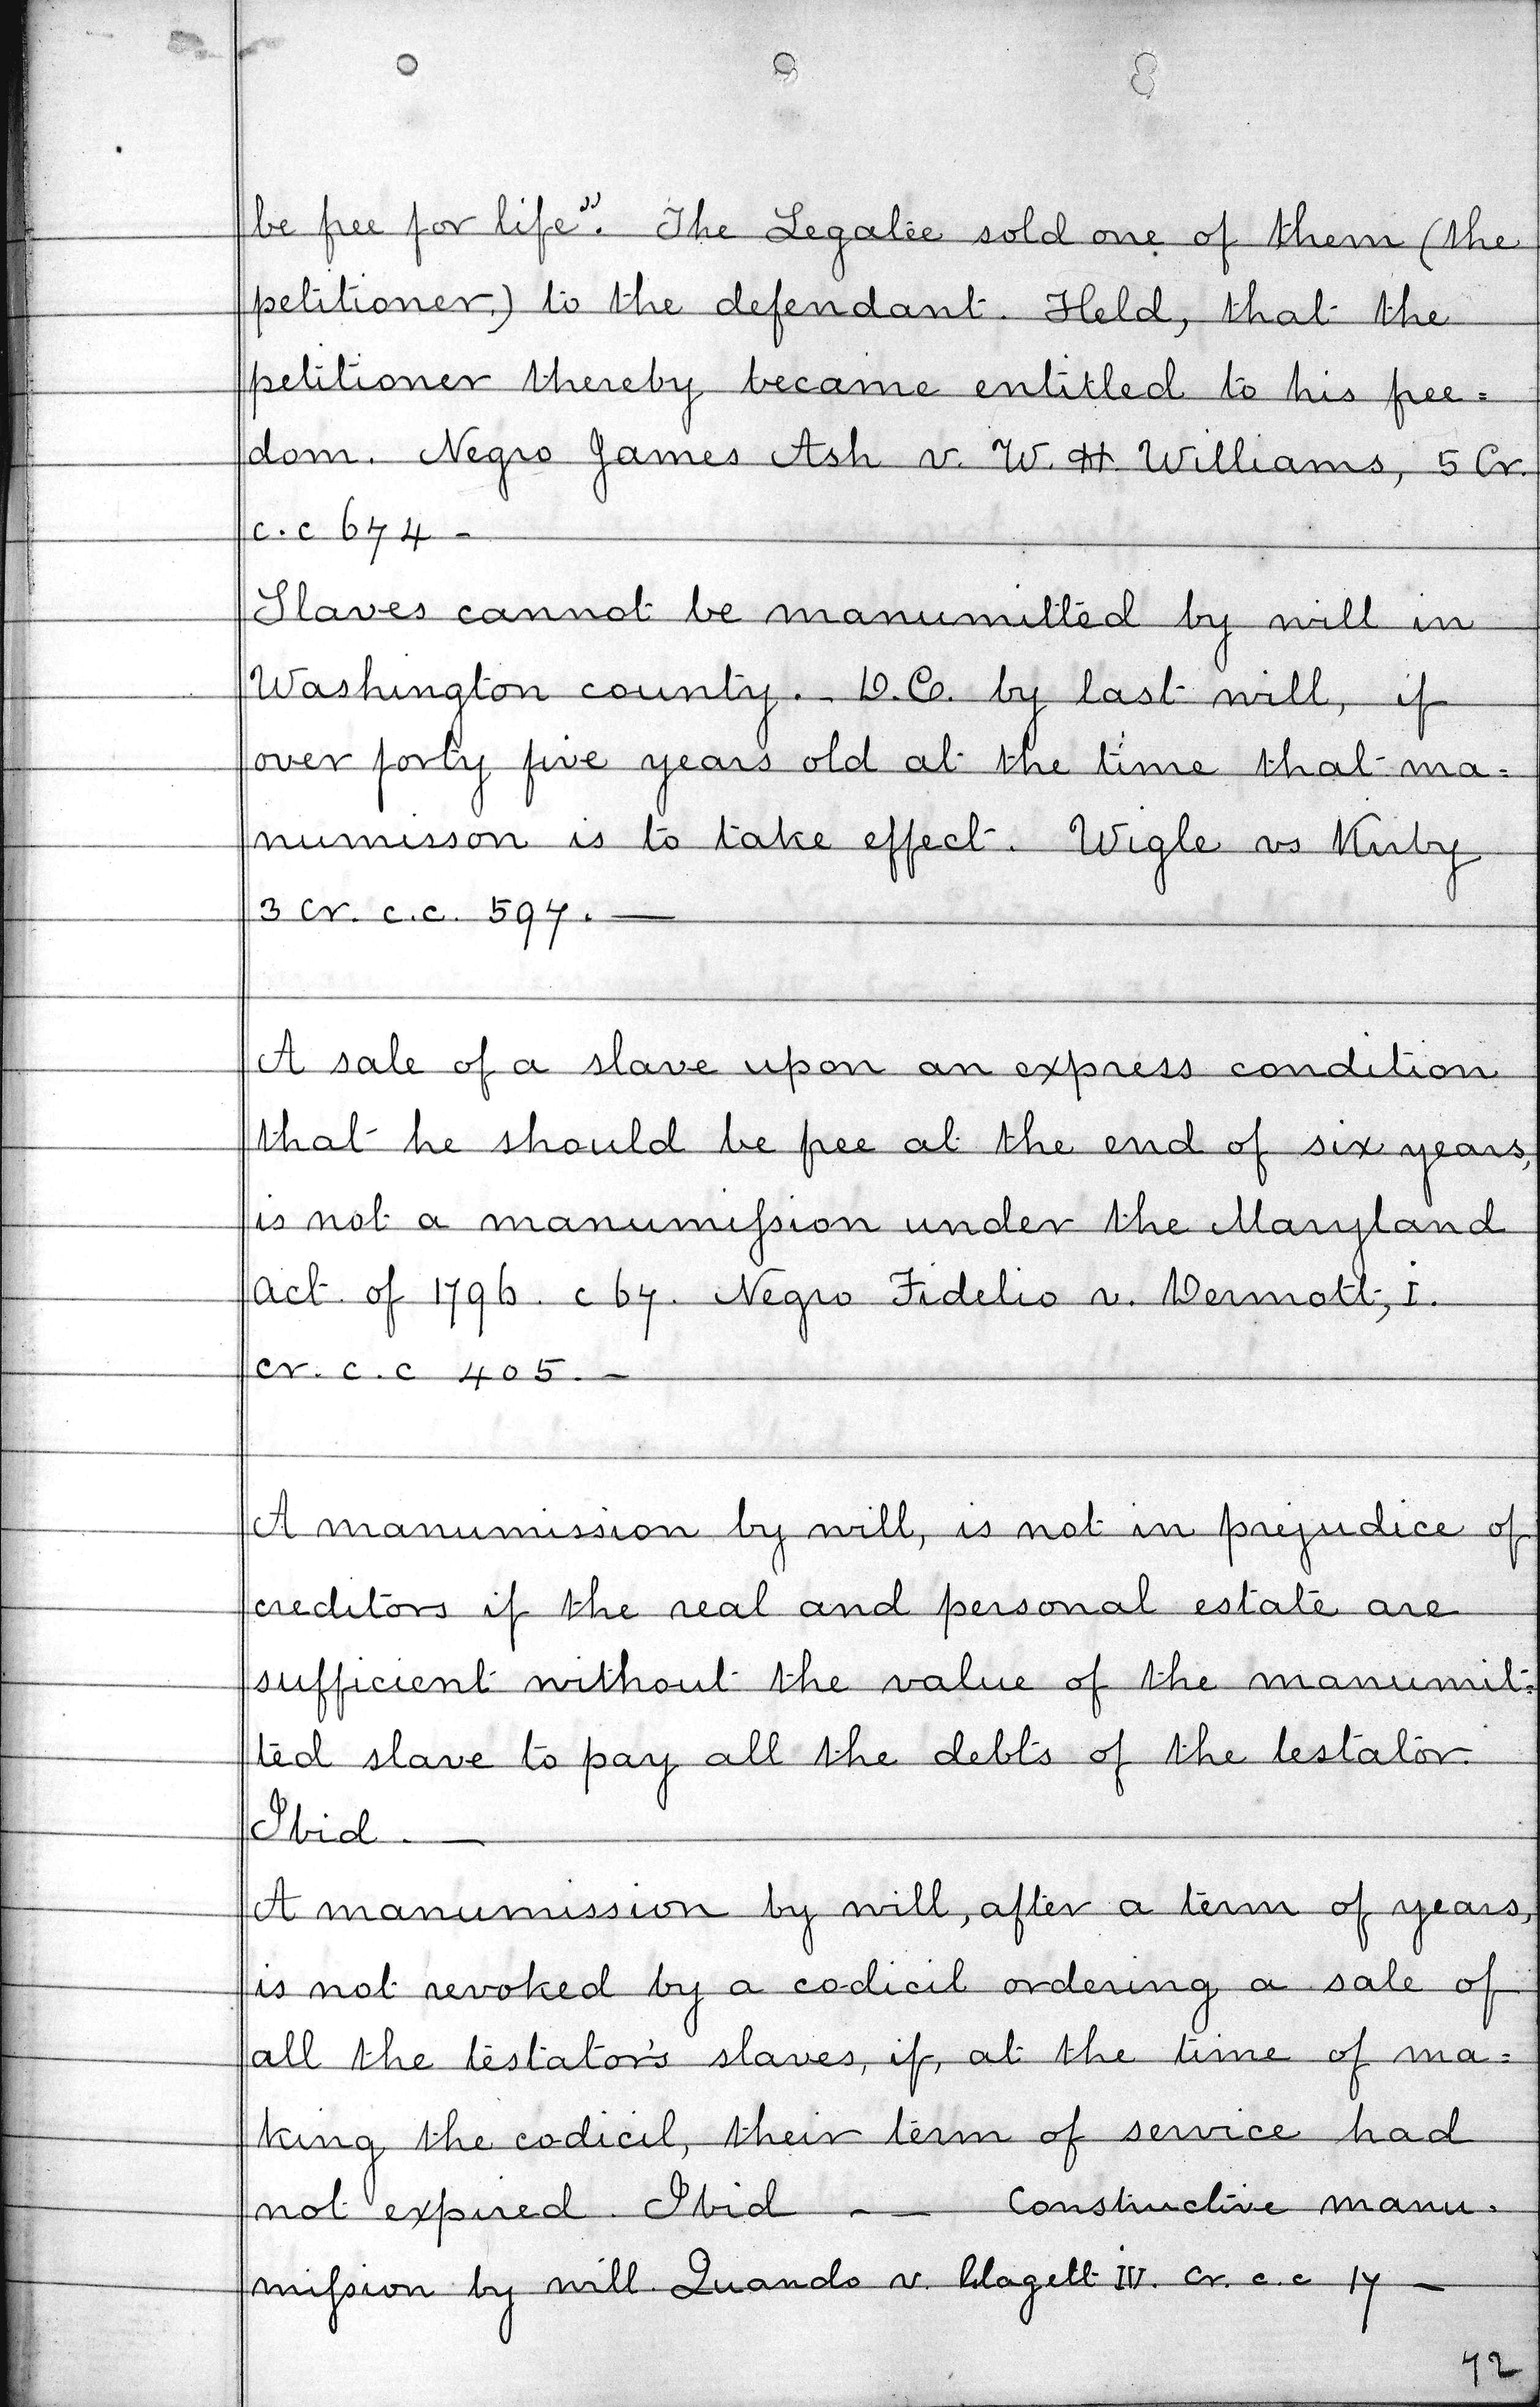 be free for life". The Legatee sold one of them (the
petitioner,) to the defendant. Held, that the
petitioner thereby became entitled to his free=
dom. Negro James Ash v. W. H. Williams, 5 Cr.
c.c 674 -
Slaves cannot be manumitted by will in
Washington county. - D.C. by last will, if
over forty five years old at the time that ma=
numisson is to take effect. Wigle vs Kirby
3 Cr. c.c. 597. —
A sale of a slave upon an express condition
that he should be free at the end of six years,
is not a manumission under the Maryland
Act of 1796. c 67. Negro Fidelio v. Dermott, I.
cr. c.c 405. -
A manumission by will, is not in prejudice of
creditors if the real and personal estate are
sufficient without the value of the manumit=
ted slave to pay all the debts of the testator.
Ibid. —
A manumission by will, after a term of years,
is not revoked by a codicil ordering a sale of
all the testator's slaves, if, at the time of ma=
king the codicil, their term of service had
not expired. Ibid - — Constructive manu-
mission by will. Quando v. Clagett IV. Cr. c.c 17 -
72